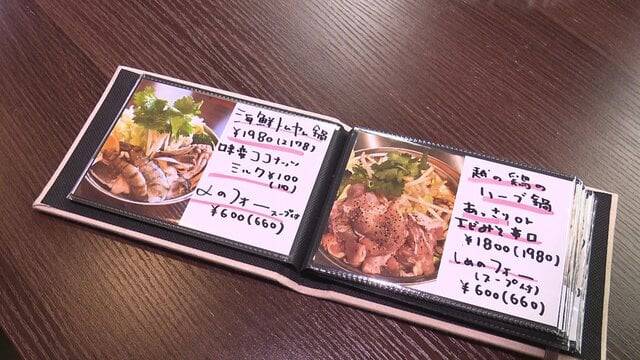 海鮮トムヤム鍋
¥1980(2178)
味変ココナッツ
ミルク¥100
(110)
〆のフォー スープ付
¥600(660)
越の鶏の
ハーブ鍋
あっさり or
エビみそ辛口
¥1800(1980)
しめのフォー
(スープ付)
¥600(660)